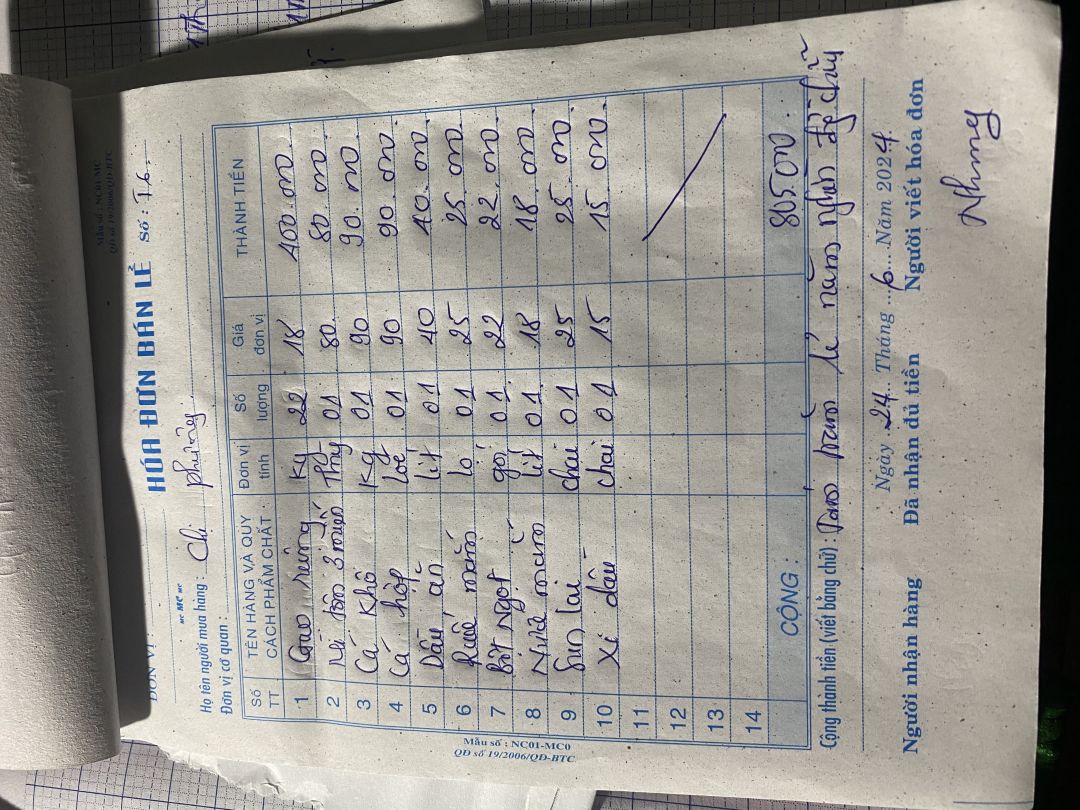 Mẫu số : NC01-MC
QĐ số 19/2006/QĐ-BTC
ĐƠN VỊ :
HÓA ĐƠN BÁN LẺ Số : T6
MC MC MC
Họ tên người mua hàng : Chị phương
Đơn vị cơ quan :
Số TT TÊN HÀNG VÀ QUY CÁCH PHẨM CHẤT Đơn vị tính Số lượng Giá đơn vị THÀNH TIỀN
1 Gạo Kg 22 18 400.000
2 Mì tôm 3 miền Thg 01 80 80.000
3 Cá khô Kg 01 90 90.000
4 Cá hộp lốc 01 90 90.000
5 Dầu ăn lít 01 40 40.000
6 mắm lo 01 25 25.000
7 Bột Ngọt gói 01 22 22.000
8 Nước mắm lít 01 18 18.000
9 Sun lai chai 01 25 25.000
10 Xì dầu chai 01 15 15.000
11
12
13
14
CỘNG : 805.000
Cộng thành tiền (viết bằng chữ) : Tám trăm lẻ năm nghìn đg chẵn
Ngày 24 Tháng 6 Năm 2024
Người nhận hàng Đã nhận đủ tiền Người viết hóa đơn
Nhung
Mẫu số : NC01-MC0
QĐ số 19/2006/QĐ-BTC